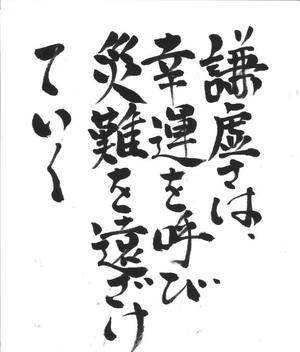 謙虚さは、
幸運を呼び
災難を遠ざけ
ていく